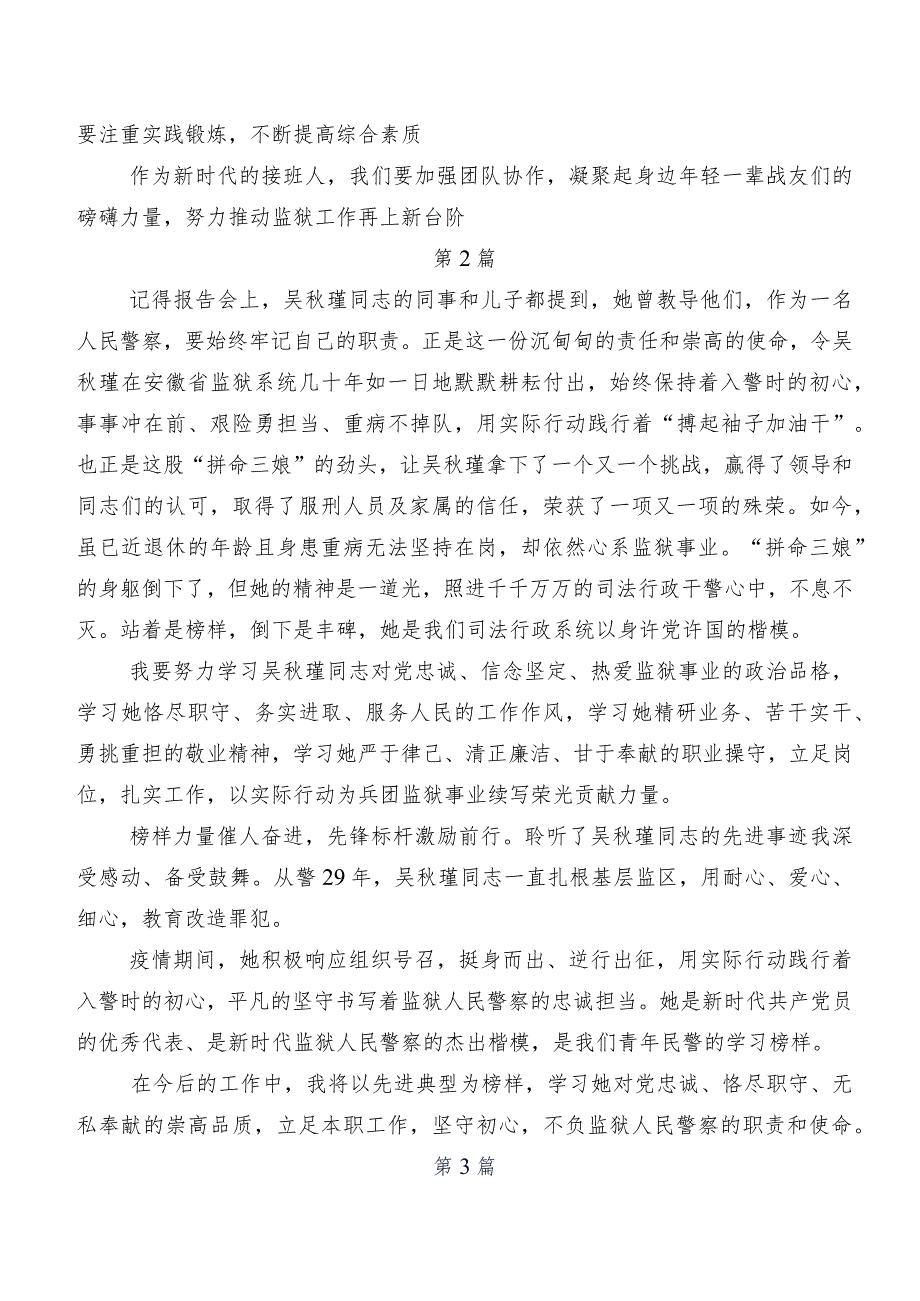 要注重实践锻炼，不断提高综合素质
作为新时代的接班人，我们要加强团队协作，凝聚起身边年轻一辈战友们的
磅礴力量，努力推动监狱工作再上新台阶
第 2 篇
记得报告会上，吴秋瑾同志的同事和儿子都提到，她曾教导他们，作为一名
人民警察，要始终牢记自己的职责。正是这一份沉甸甸的责任和崇高的使命，令吴
秋瑾在安徽省监狱系统几十年如一日地默默耕耘付出，始终保持着入警时的初心，
事事冲在前、艰险勇担当、重病不掉队，用实际行动践行着“搏起袖子加油干”。
也正是这股“拼命三娘”的劲头，让吴秋瑾拿下了一个又一个挑战，赢得了领导和
同志们的认可，取得了服刑人员及家属的信任，荣获了一项又一项的殊荣。如今，
虽已近退休的年龄且身患重病无法坚持在岗，却依然心系监狱事业。“拼命三娘”
的身躯倒下了，但她的精神是一道光，照进千千万万的司法行政干警心中，不息不
灭。站着是榜样，倒下是丰碑，她是我们司法行政系统以身许党许国的楷模。
我要努力学习吴秋瑾同志对党忠诚、信念坚定、热爱监狱事业的政治品格，
学习她恪尽职守、务实进取、服务人民的工作作风，学习她精研业务、苦干实干、
勇挑重担的敬业精神，学习她严于律己、清正廉洁、甘于奉献的职业操守，立足岗
位，扎实工作，以实际行动为兵团监狱事业续写荣光贡献力量。
榜样力量催人奋进，先锋标杆激励前行。聆听了吴秋瑾同志的先进事迹我深
受感动、备受鼓舞。从警 29 年，吴秋瑾同志一直扎根基层监区，用耐心、爱心、
细心，教育改造罪犯。
疫情期间，她积极响应组织号召，挺身而出、逆行出征，用实际行动践行着
入警时的初心，平凡的坚守书写着监狱人民警察的忠诚担当。她是新时代共产党员
的优秀代表、是新时代监狱人民警察的杰出楷模，是我们青年民警的学习榜样。
在今后的工作中，我将以先进典型为榜样，学习她对党忠诚、恪尽职守、无
私奉献的崇高品质，立足本职工作，坚守初心，不负监狱人民警察的职责和使命。
第 3 篇